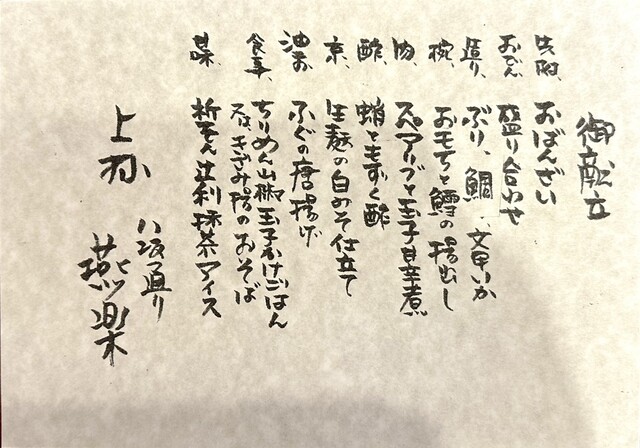 御献立
先附、おばんざい
おでん、盛り合わせ
造り、ぶり、鯛、文甲いか
椀、おもちと鱈の揚出し
肉、スペアリブと玉子甘辛煮
酢、蛸ともずく酢
京、生麩の白みそ仕立て
油お、ふぐの唐揚げ
食事、ちりめん山椒玉子かけごはん
又は、きざみ揚のおそば
甘味、祇をん辻利抹茶アイス
上む
八坂通り
燕楽